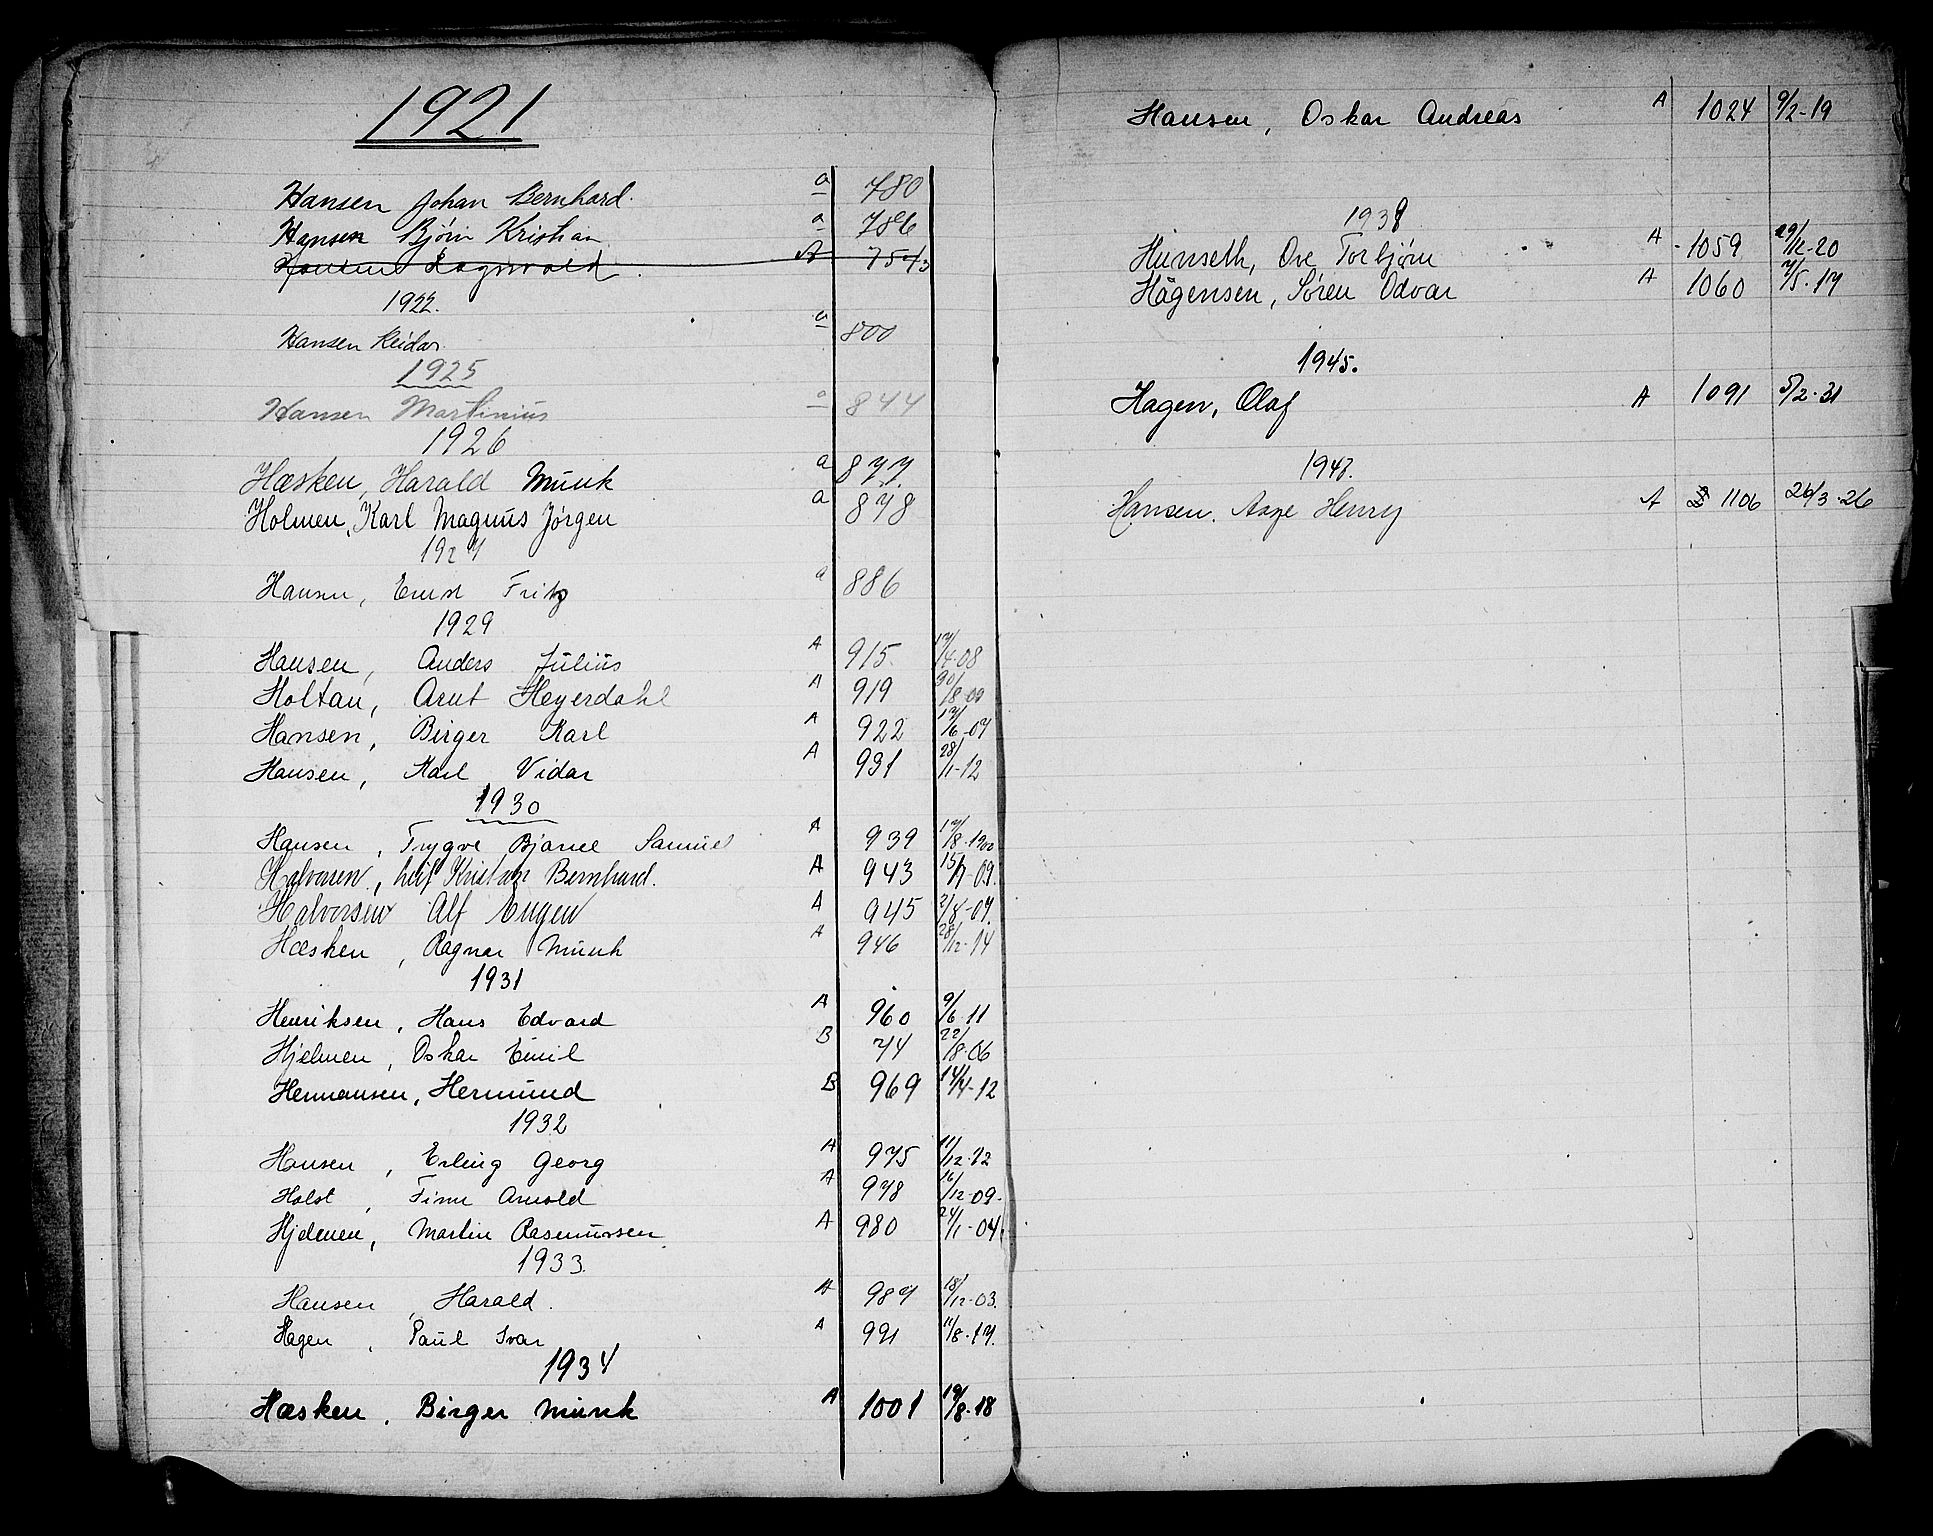 1921
Hansen Johan Bernhard. a 780
Hansen Bjørn Kristian a 786
Hansen Ragnvald A 754/3
1922.
Hansen Reidar a 800
1925
Hansen Martinius a 844
1926
Hæsken, Harald Munk a 877
Holmen, Karl Magnus Jørgen a 878
1927
Hansen, Ernst Fritz a 886
1929
Hansen, Anders Julius A 915 17/4-08
Holtan, Arnt Heyerdahl A 919 /8-09
Hansen, Birger Karl A 922 17/6-07
Hansen, Karl Vidar A 931 28/11-12
1930
Hansen, Trygve Bjarne Samuel A 939 17/8-1900
Halvorsen, Leif Kristian Bernhard. A 943 15/7-09.
Halvorsen Alf Eugen A 945 2/8-07.
Hæsken, Ragnar Munk A 946 28/12-14
1931
Henriksen, Hans Edvard A 960 9/6-11
Hjelmen, Oskar Emil B 74 22/8-06
Hermansen, Hermund B 969 14/4-12
1932
Hansen, Erling Georg A 975 11/12-12
Holst, Finn Arnold A 978 16/12-09.
Hjelmen, Martin Rasmussen A 980 24/1-04.
1933.
Hansen, Harald. A 987 18/12-03.
Hagen, Paul Ivar A 991 11/8-17.
1934
Hæsken, Birger Munk A 1001 19/8-18
Hansen, Oskar Andreas A 1024 9/2-19
1938
Hunseth, Ove Torbjørn A 1059 29/12-20
Hågensen, Søren Odvar A 1060 7/5-17
1945.
Hagen, Olaf A 1091 5/2-31
1947.
Hansen. Aage Henry A 1106 26/3-26